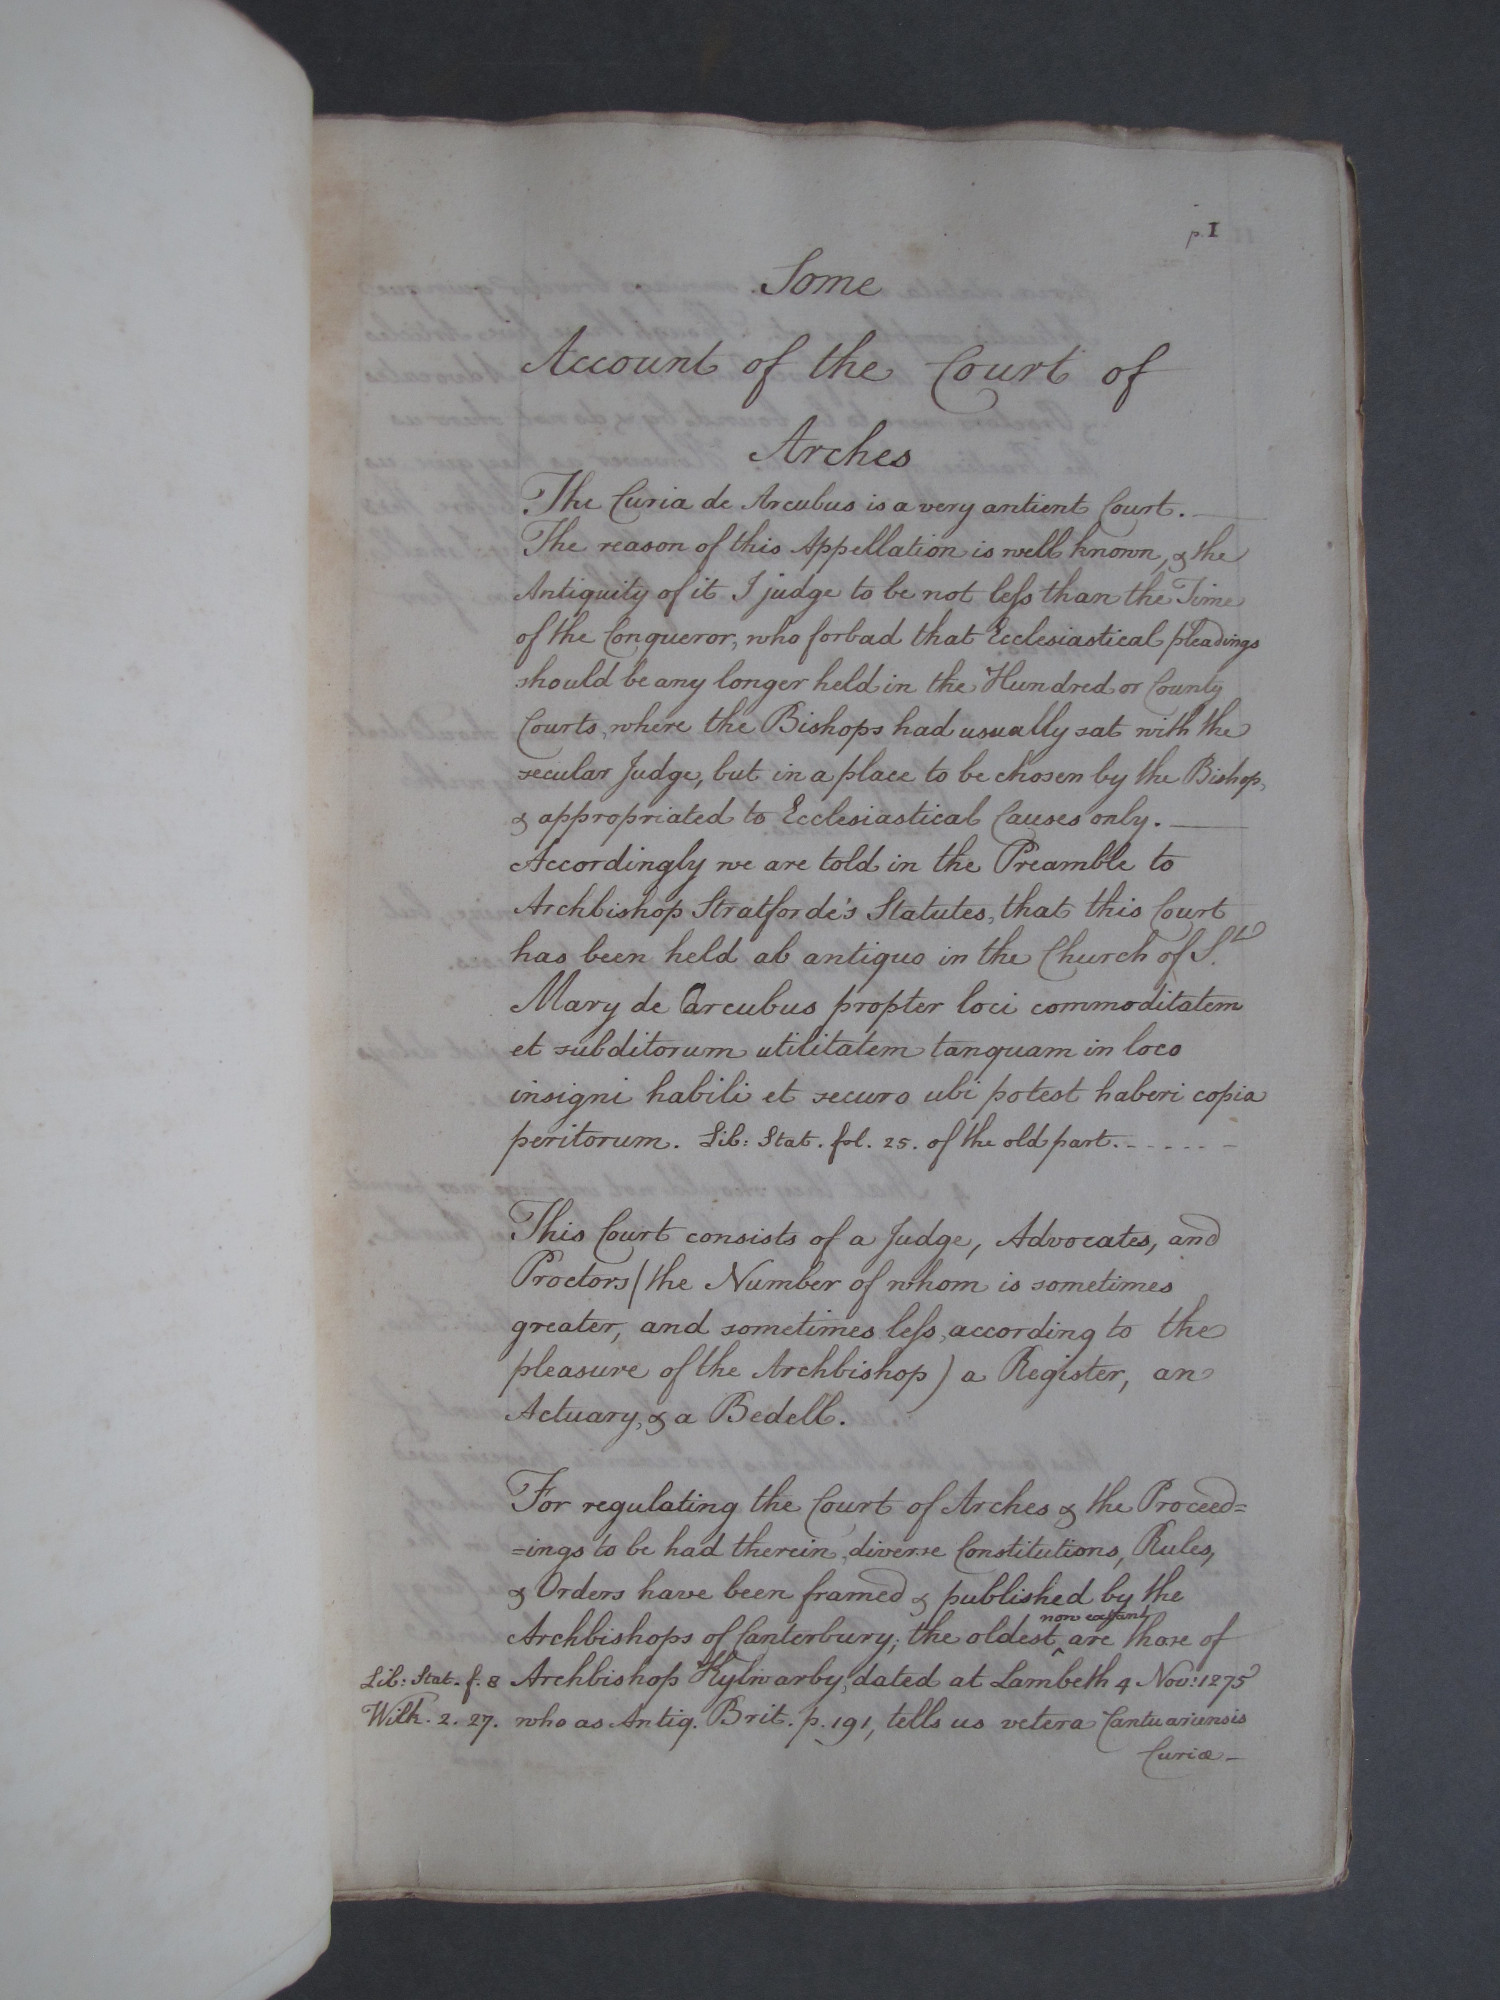 p. 1
Some
Account of the Court of
Arches
The Curia de Arcubus is a very antient Court.
The reason of this Appellation is well known, & the
Antiquity of it I judge to be not less than the Time
of the Conqueror, who forbad that Ecclesiastical pleadings
should be any longer held in the Hundred or County
Courts, where the Bishops had usually sat with the
secular Judge, but in a place to be chosen by the Bishop,
& appropriated to Ecclesiastical Causes only.
Accordingly we are told in the Preamble to
Archbishop Stratforde's Statutes, that this Court
has been held ab antiquo in the Church of St.
Mary de Arcubus propter loci commoditatem
et subditorum utilitatem tanquam in loco
insigni habili et securo ubi potest haberi copia
peritorum. Lib: Stat. fol. 25. of the old part.
This Court consists of a Judge, Advocates, and
Proctors (the Number of whom is sometimes
greater, and sometimes less, according to the
pleasure of the Archbishop) a Register, an
Actuary, & a Bedell.
For regulating the Court of Arches & the Proceed=
=ings to be had therein, diverse Constitutions, Rules,
& Orders have been framed & published by the
Archbishops of Canterbury; the oldest now extant are those of
Lib: Stat. f. 8 Archbishop Kylwarby, dated at Lambeth 4 Nov: 1275
Wilk. 2. 27. who as Antiq. Brit. p. 191, tells us vetera Cantuariensis
Curiæ